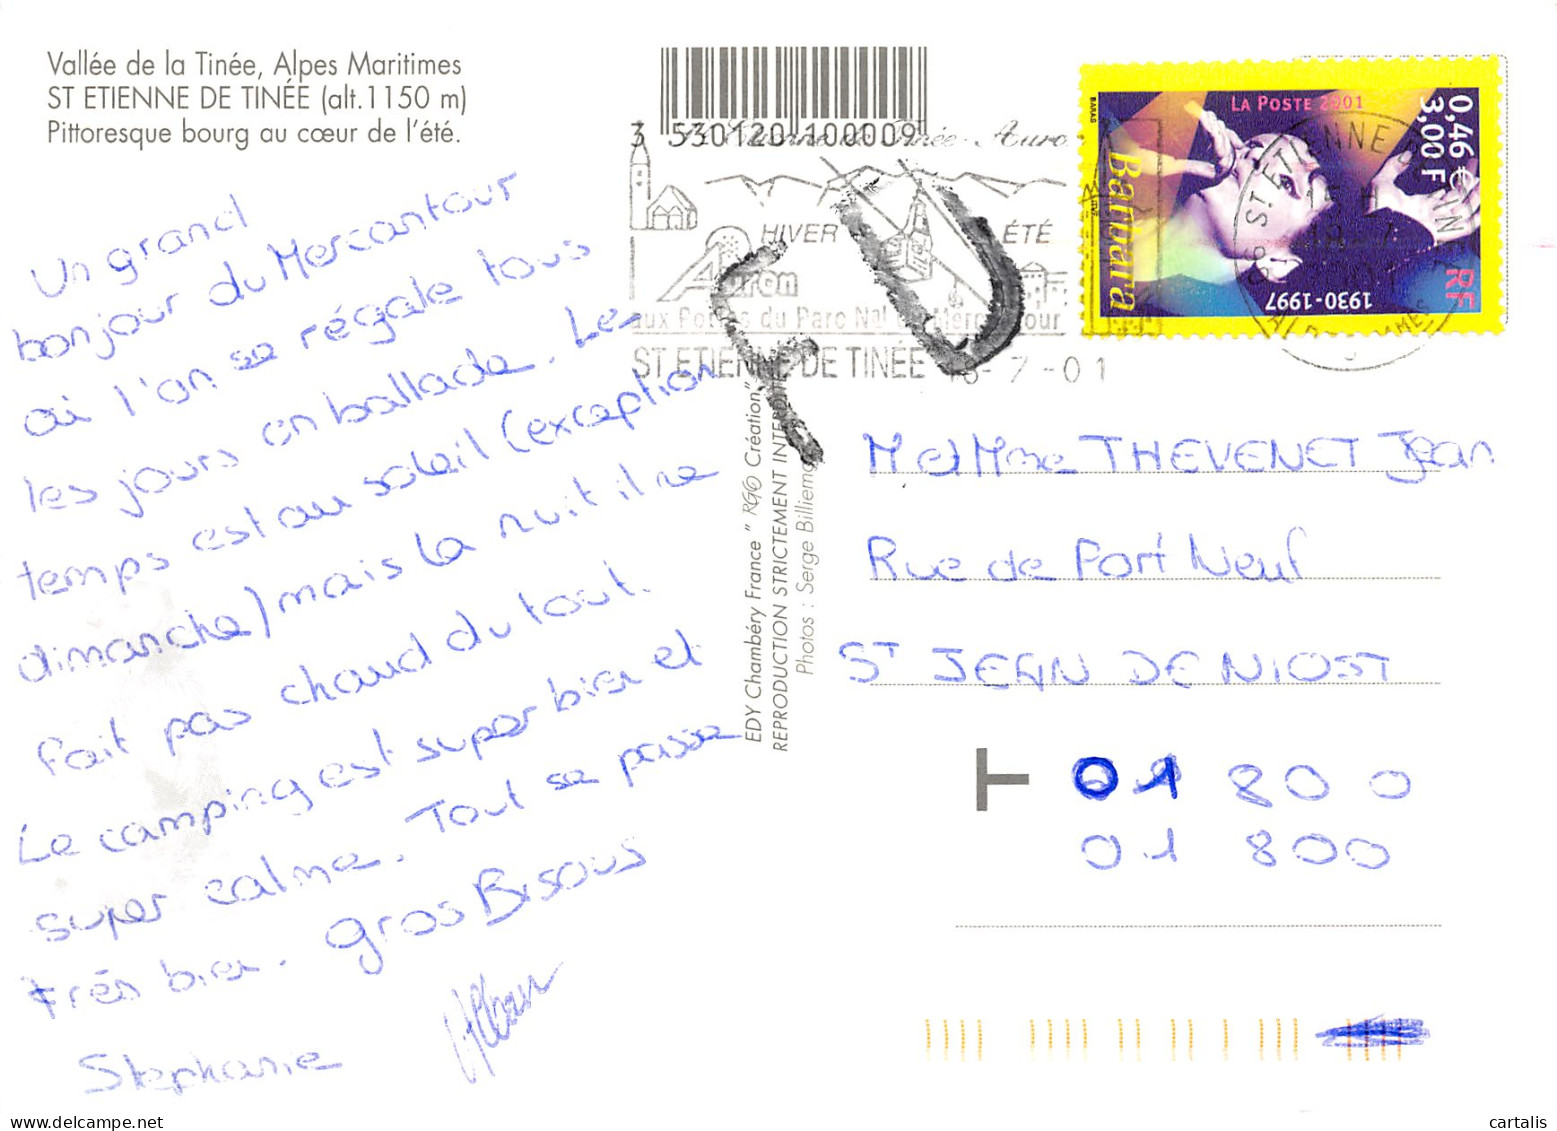 Vallée de la Tinée, Alpes Maritimes
ST ETIENNE DE TINÉE (alt.1150 m)
Pittoresque bourg au cœur de l'été.
3 530120 100009
HIVER
ÉTÉ
Auron
aux Portes du Parc Nal du Mercantour
ST ETIENNE DE TINÉE 16-7-01
LA POSTE 2001
0,46 €
3,00 F
Barbara
1930-1997
RF
BARAG
Un grand
bonjour du Mercantour
où l'on se régale tous
les jours en ballade. Le
temps est au soleil (exception
dimanche) mais la nuit il ne
fait pas chaud du tout.
Le camping est super bien et
super calme. Tout se passe
très bien. gros Bisous
Stephanie
EDY Chambéry France " RGO Création"
REPRODUCTION STRICTEMENT INTERDITE
Photos : Serge
M et Mme THEVENET Jean
Rue de Port Neuf
ST JEAN DE NIOST
T 01 800
01 800
cartalis